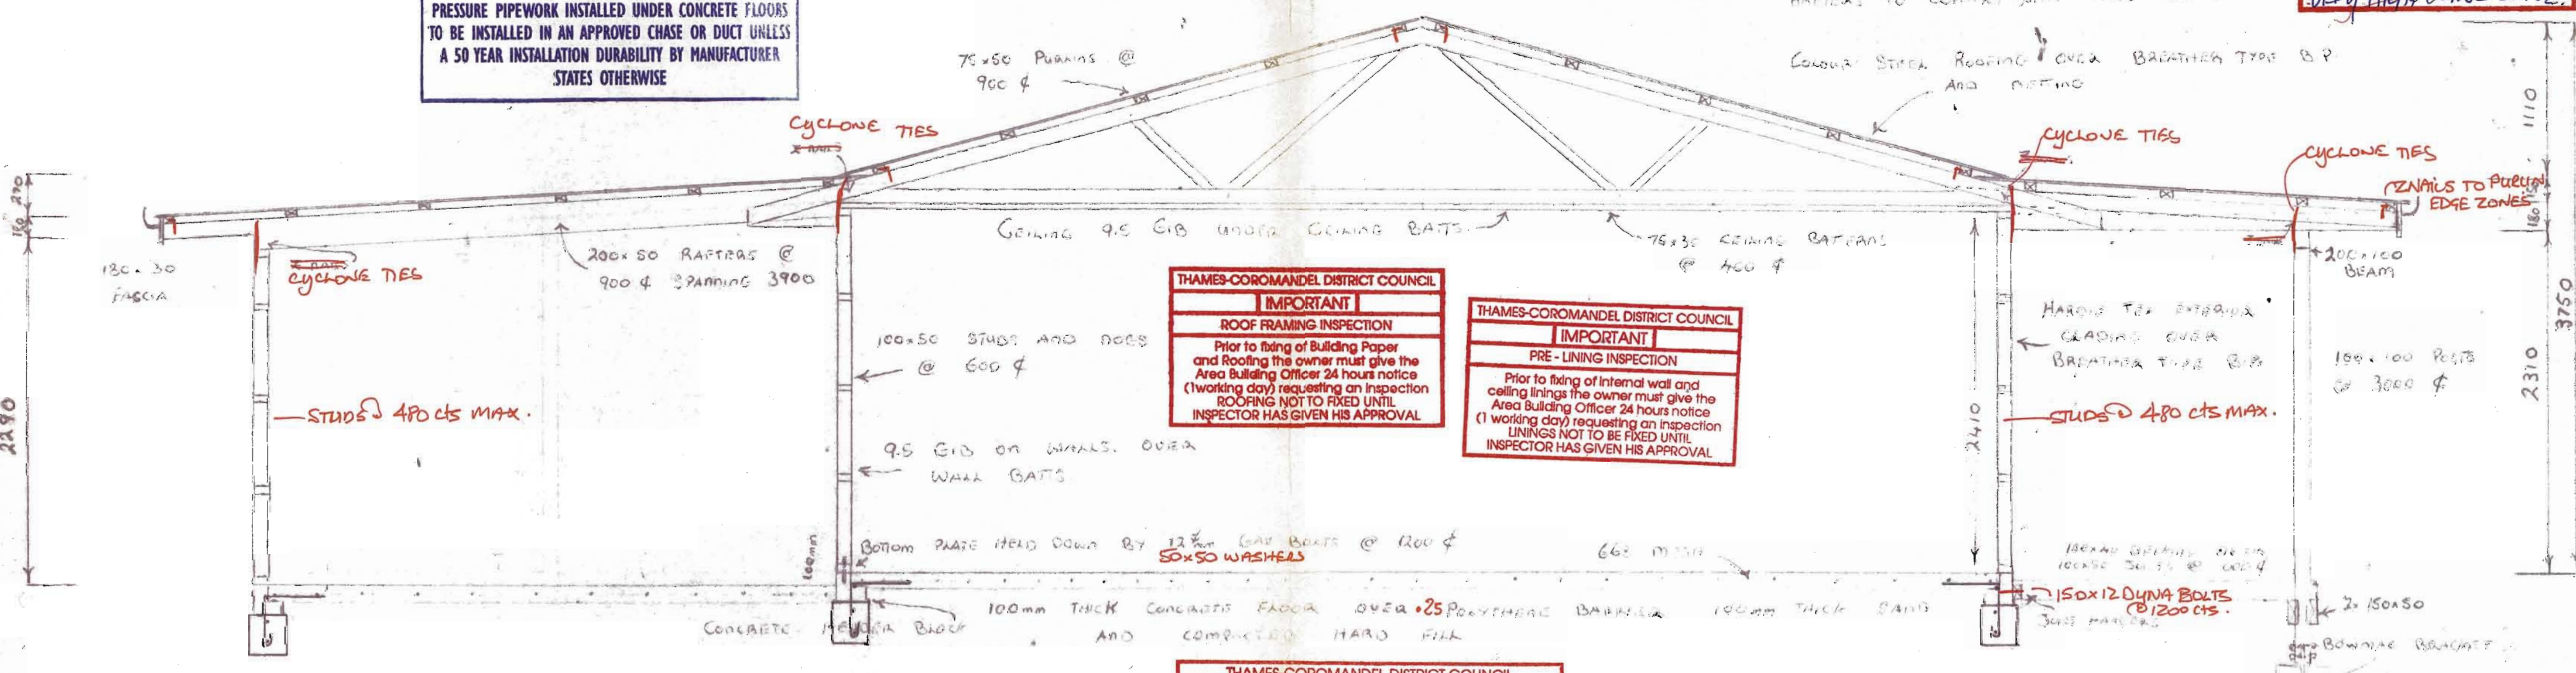 PRESSURE PIPEWORK INSTALLED UNDER CONCRETE FLOORS
TO BE INSTALLED IN AN APPROVED CHASE OR DUCT UNLESS
A 50 YEAR INSTALLATION DURABILITY BY MANUFACTURER
STATES OTHERWISE
75x50 PURLINS @
900 ¢
COLOUR STEEL ROOFING OVER BREATHER TYPE B.P.
AND NETTING
CYCLONE TIES
CYCLONE TIES
CYCLONE TIES
ZNAILS TO PURLIN
EDGE ZONES
1110
270
180
150
180
3750
FASCIA
CYCLONE TIES
200x50 RAFTERS @
900 ¢ SPANNING 3900
CEILING 9.5 GIB UNDER CEILING BATTS
CEILING BATTENS
@ 400 ¢
200x100
BEAM
THAMES-COROMANDEL DISTRICT COUNCIL
IMPORTANT
ROOF FRAMING INSPECTION
Prior to fixing of Building Paper
and Roofing the owner must give the
Area Building Officer 24 hours notice
(1working day) requesting an inspection
ROOFING NOT TO FIXED UNTIL
INSPECTOR HAS GIVEN HIS APPROVAL
THAMES-COROMANDEL DISTRICT COUNCIL
IMPORTANT
PRE - LINING INSPECTION
Prior to fixing of internal wall and
ceiling linings the owner must give the
Area Building Officer 24 hours notice
(1 working day) requesting an inspection
LININGS NOT TO BE FIXED UNTIL
INSPECTOR HAS GIVEN HIS APPROVAL
100x50 STUDS AND NOGS
@ 600 ¢
HARDIE TEX EXTERIOR
CLADING OVER
BREATHER TYPE B.P.
100x100 POSTS
@ 3000 ¢
2290
STUDS @ 480 cts MAX.
9.5 GIB ON WALLS. OVER
WALL BATTS
2410
STUDS @ 480 cts MAX.
2310
100mm
BOTTOM PLATE HELD DOWN BY 12mm GAL BOLTS @ 1200 ¢
50x50 WASHERS
MESH
100mm THICK CONCRETE FLOOR OVER .25 POLYTHENE BARRIER 100mm THICK SAND
AND COMPACTED HARD FILL
CONCRETE HEADER BLOCK
150x12 DYNA BOLTS
@ 1200 cts.
JOIST HANGERS
2x 150x50
BOWMAC BRACKET
THAMES-COROMANDEL DISTRICT COUNCIL